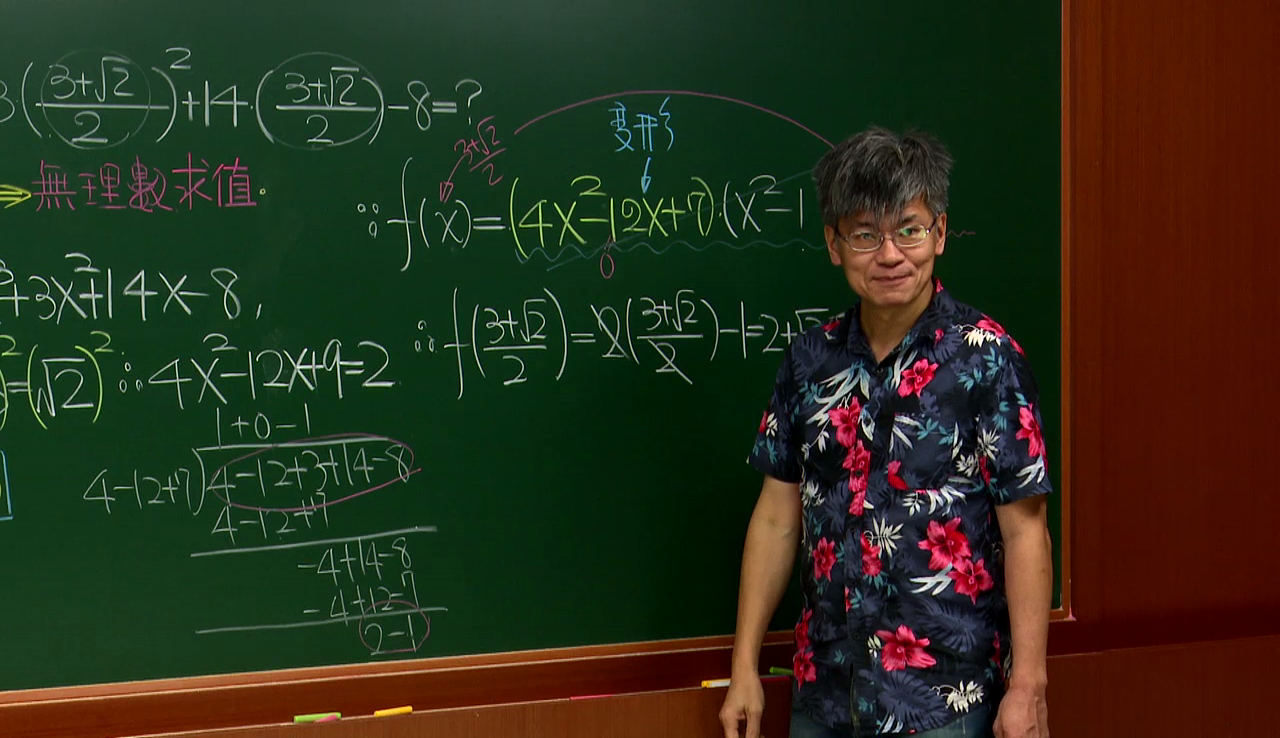 3((3+√2)/2)²+14·((3+√2)/2)-8=?
⇒無理數求值.
變形
(3+√2)/2
∴f(x)=(4x²-12x+7)·(x²-1
0
+3x²+14x-8,
∴f((3+√2)/2)=2((3+√2)/2)-1=2+√2
=(√2)² ∴4x²-12x+9=2
1+0-1
4-12+7)4-12+3+14-8
4-12+7
-4+14-8
-4+12-7
2-1